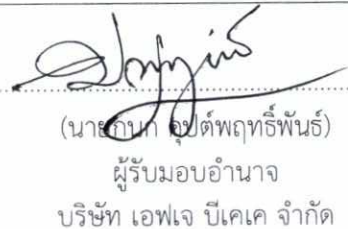 (นายกนก อุปต์พฤทธิ์พันธ์)
ผู้รับมอบอำนาจ
บริษัท เอฟเจ บีเคเค จำกัด